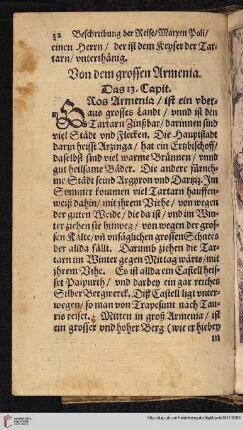 32 Beschreibung der Reise/Marxen Poli/
einen Herrn/ der ist dem Keyser der Tar-
tarn/ vnterthänig.
Von dem grossen Armenia.
Das 13. Capit.
GRos Armenia/ ist ein vber-
aus grosses Landt/ vnnd ist den
Tartarn Zinßbar/ darinnen sind
viel Städt vnd Flecken. Die Hauptstadt
darin heist Arzinga/ hat ein Ertzbischoff/
daselbst sind viel warme Brünnen/ vnnd
gut heilsame Bäder. Die andere fürneh-
me Städt seind Argyron vnd Dartzi. Im
Sommer kommen viel Tartarn hauffen-
weiß dahin/ mit ihrem Viehe/ von wegen
der guten Weide/ die da ist/ vnd im Win-
ter ziehen sie hinweg/ von wegen der gros-
sen Kälte/ vñ vnsäglichen grossen Schnees
der alda fällt. Darumb ziehen die Tar-
tarn im Winter gegen Mittag wärts/ mit
ihrem Vihe. Es ist allda ein Castell heis-
set Paipurth/ vnd darbey ein gar reiches
Silber Bergwerck. Diß Castell ligt vnter-
wegen/ so man von Trapesunt nach Tau-
ris reiset. Mitten in groß Armenia/ ist
ein grosser vnd hoher Berg (wie er hiebey